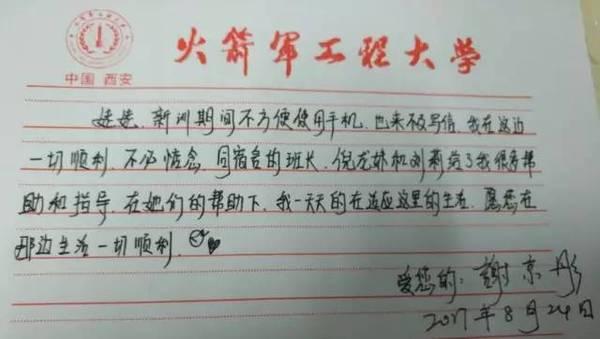 火箭军工程大学
中国 西安
姥姥、新训期间不方便使用手机、也来不及写信、我在这边
一切顺利、不必惦念、同宿舍的班长、倪龙妹和刘莉给了我很多帮
助和指导、在她们的帮助下、我一天天的在适应这里的生活、愿您在
那边生活一切顺利、
爱您的：谢京彤
2017年8月24日